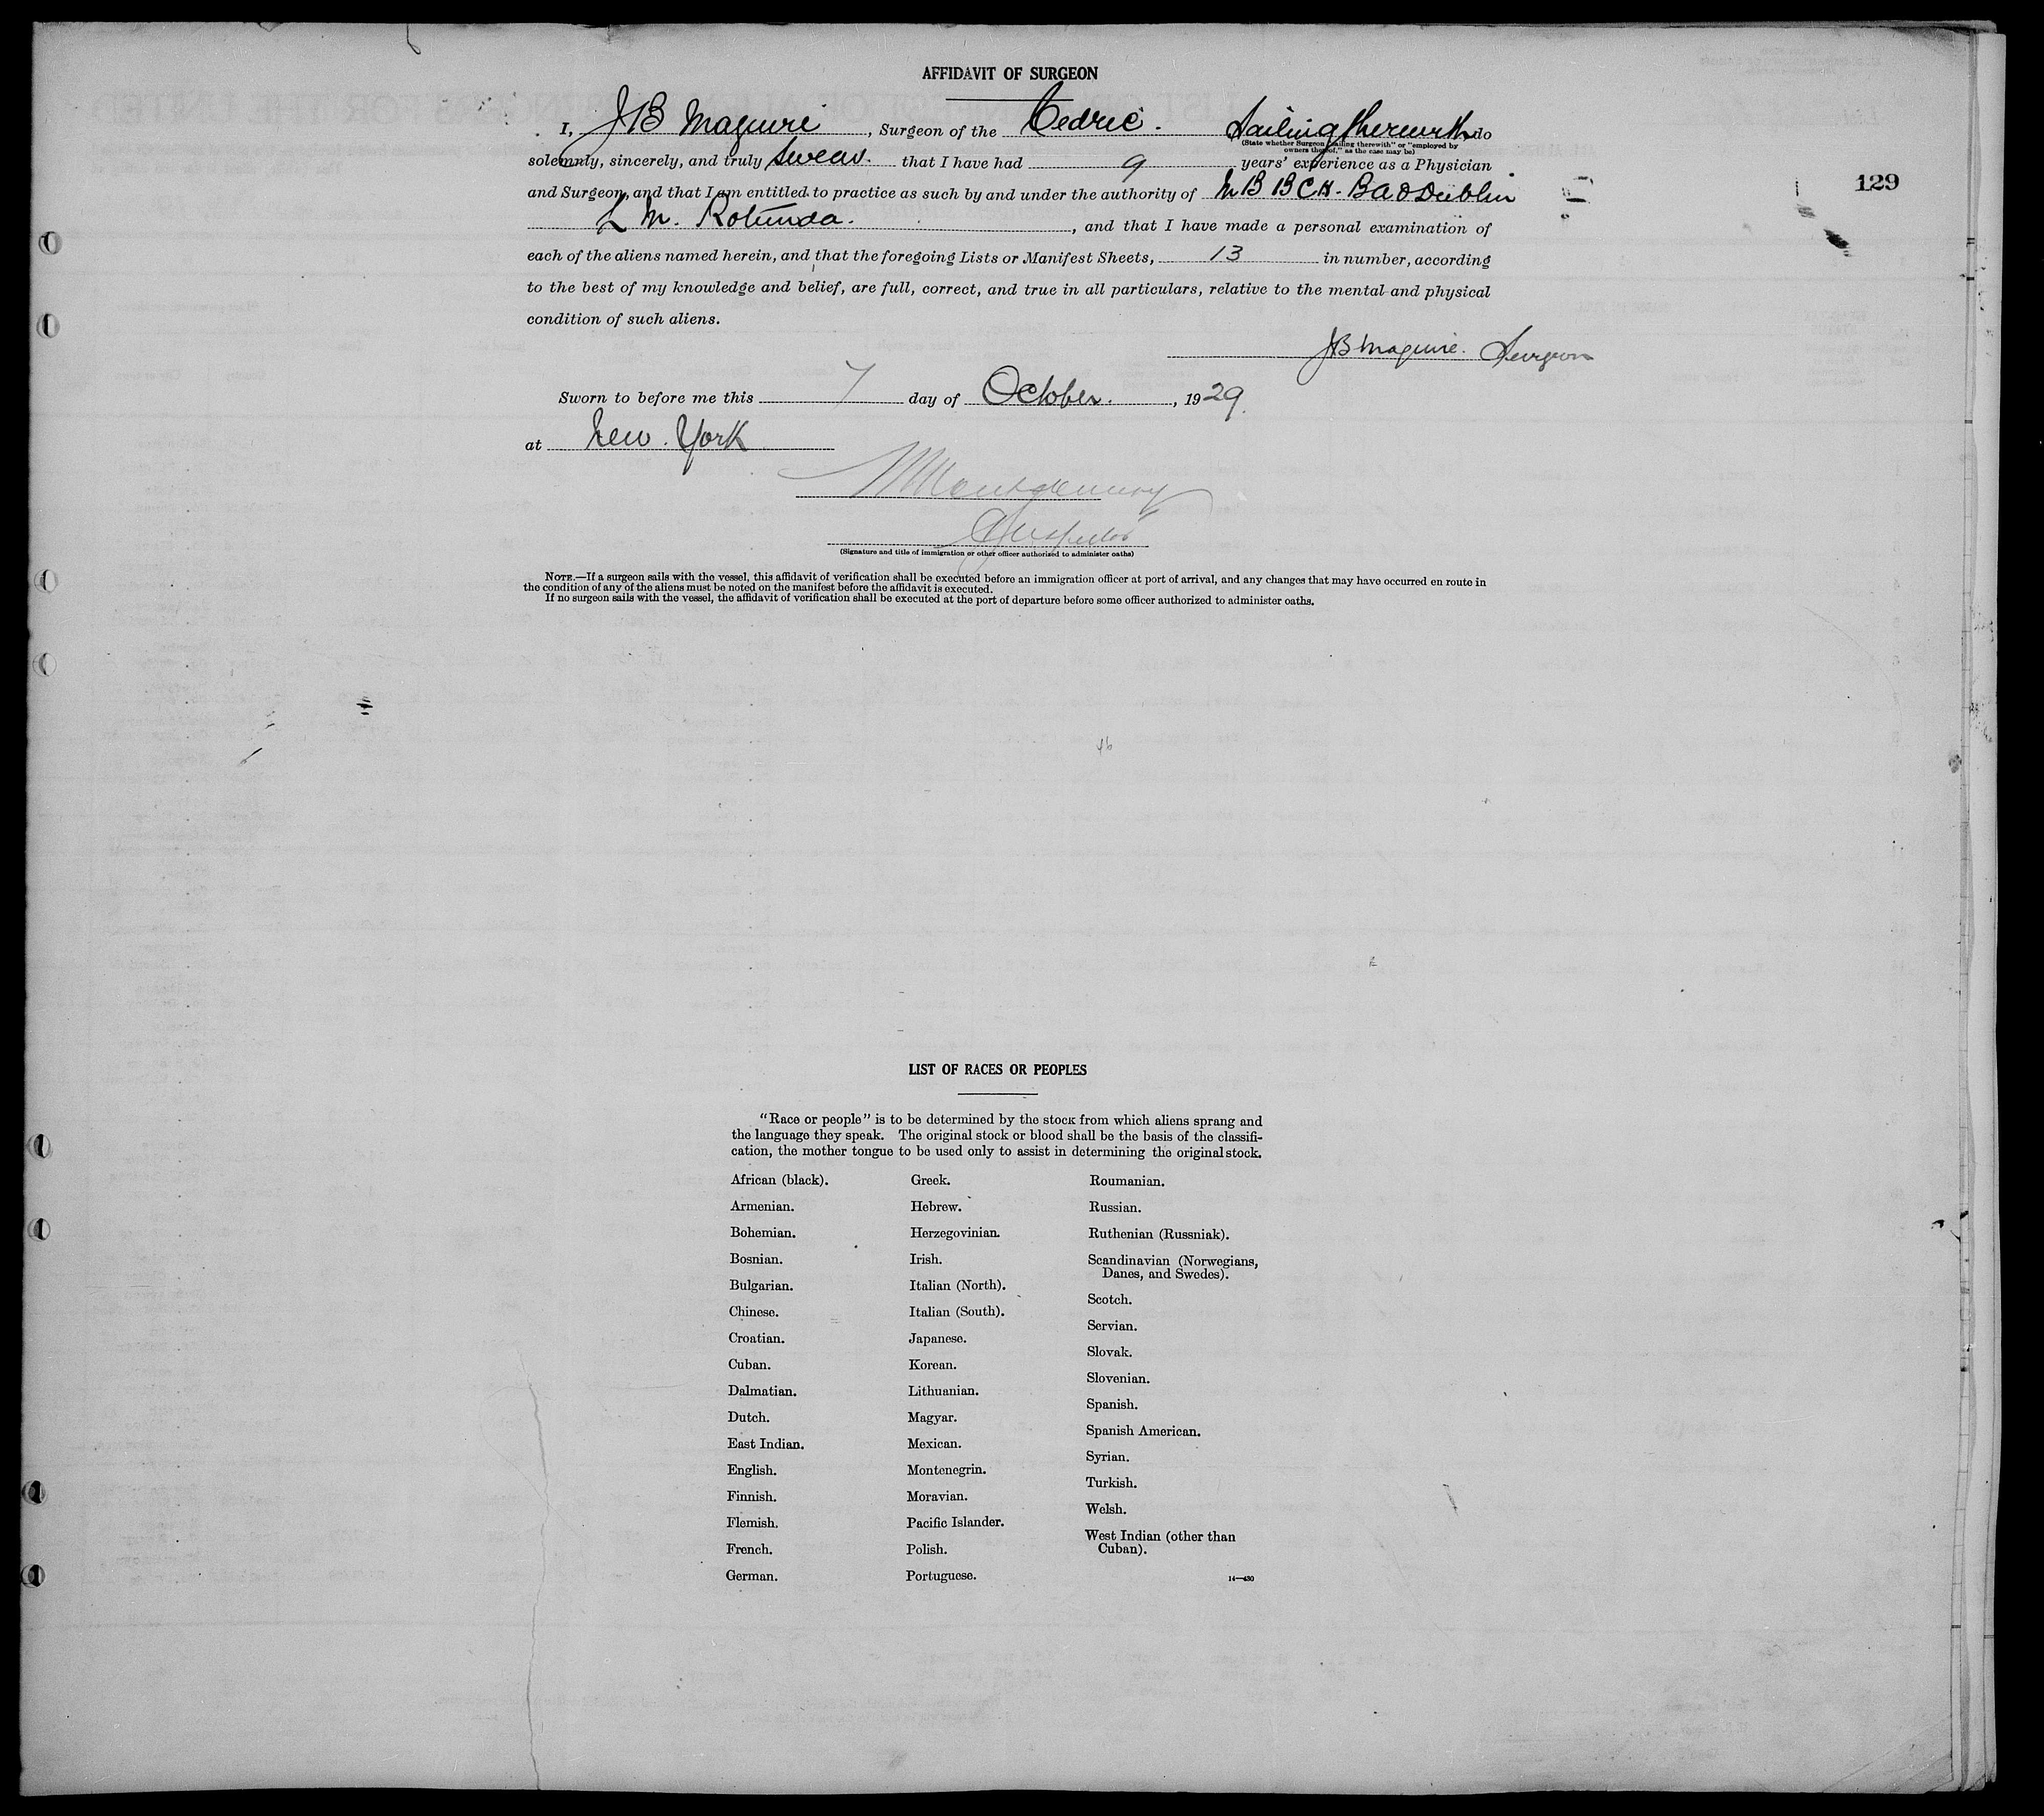 AFFIDAVIT OF SURGEON
I, JB Maguire, Surgeon of the Cedric. Sailing therewith do
(State whether Surgeon "sailing therewith" or "employed by
owners thereof," as the case may be)
solemnly, sincerely, and truly swear. that I have had 9 years' experience as a Physician
and Surgeon, and that I am entitled to practice as such by and under the authority of MB BCH. BAO Dublin
129
L M. Rotunda. , and that I have made a personal examination of
each of the aliens named herein, and that the foregoing Lists or Manifest Sheets, 13 in number, according
to the best of my knowledge and belief, are full, correct, and true in all particulars, relative to the mental and physical
condition of such aliens.
JB Maguire. Surgeon
Sworn to before me this 7 day of October. , 1929.
at New. York
Montgomery
Inspector
(Signature and title of immigration or other officer authorized to administer oaths)
NOTE.—If a surgeon sails with the vessel, this affidavit of verification shall be executed before an immigration officer at port of arrival, and any changes that may have occurred en route in
the condition of any of the aliens must be noted on the manifest before the affidavit is executed.
If no surgeon sails with the vessel, the affidavit of verification shall be executed at the port of departure before some officer authorized to administer oaths.
LIST OF RACES OR PEOPLES
"Race or people" is to be determined by the stock from which aliens sprang and
the language they speak. The original stock or blood shall be the basis of the classifi-
cation, the mother tongue to be used only to assist in determining the original stock.
African (black).
Armenian.
Bohemian.
Bosnian.
Bulgarian.
Chinese.
Croatian.
Cuban.
Dalmatian.
Dutch.
East Indian.
English.
Finnish.
Flemish.
French.
German.
Greek.
Hebrew.
Herzegovinian.
Irish.
Italian (North).
Italian (South).
Japanese.
Korean.
Lithuanian.
Magyar.
Mexican.
Montenegrin.
Moravian.
Pacific Islander.
Polish.
Portuguese.
Roumanian.
Russian.
Ruthenian (Russniak).
Scandinavian (Norwegians,
Danes, and Swedes).
Scotch.
Servian.
Slovak.
Slovenian.
Spanish.
Spanish American.
Syrian.
Turkish.
Welsh.
West Indian (other than
Cuban).
14—430